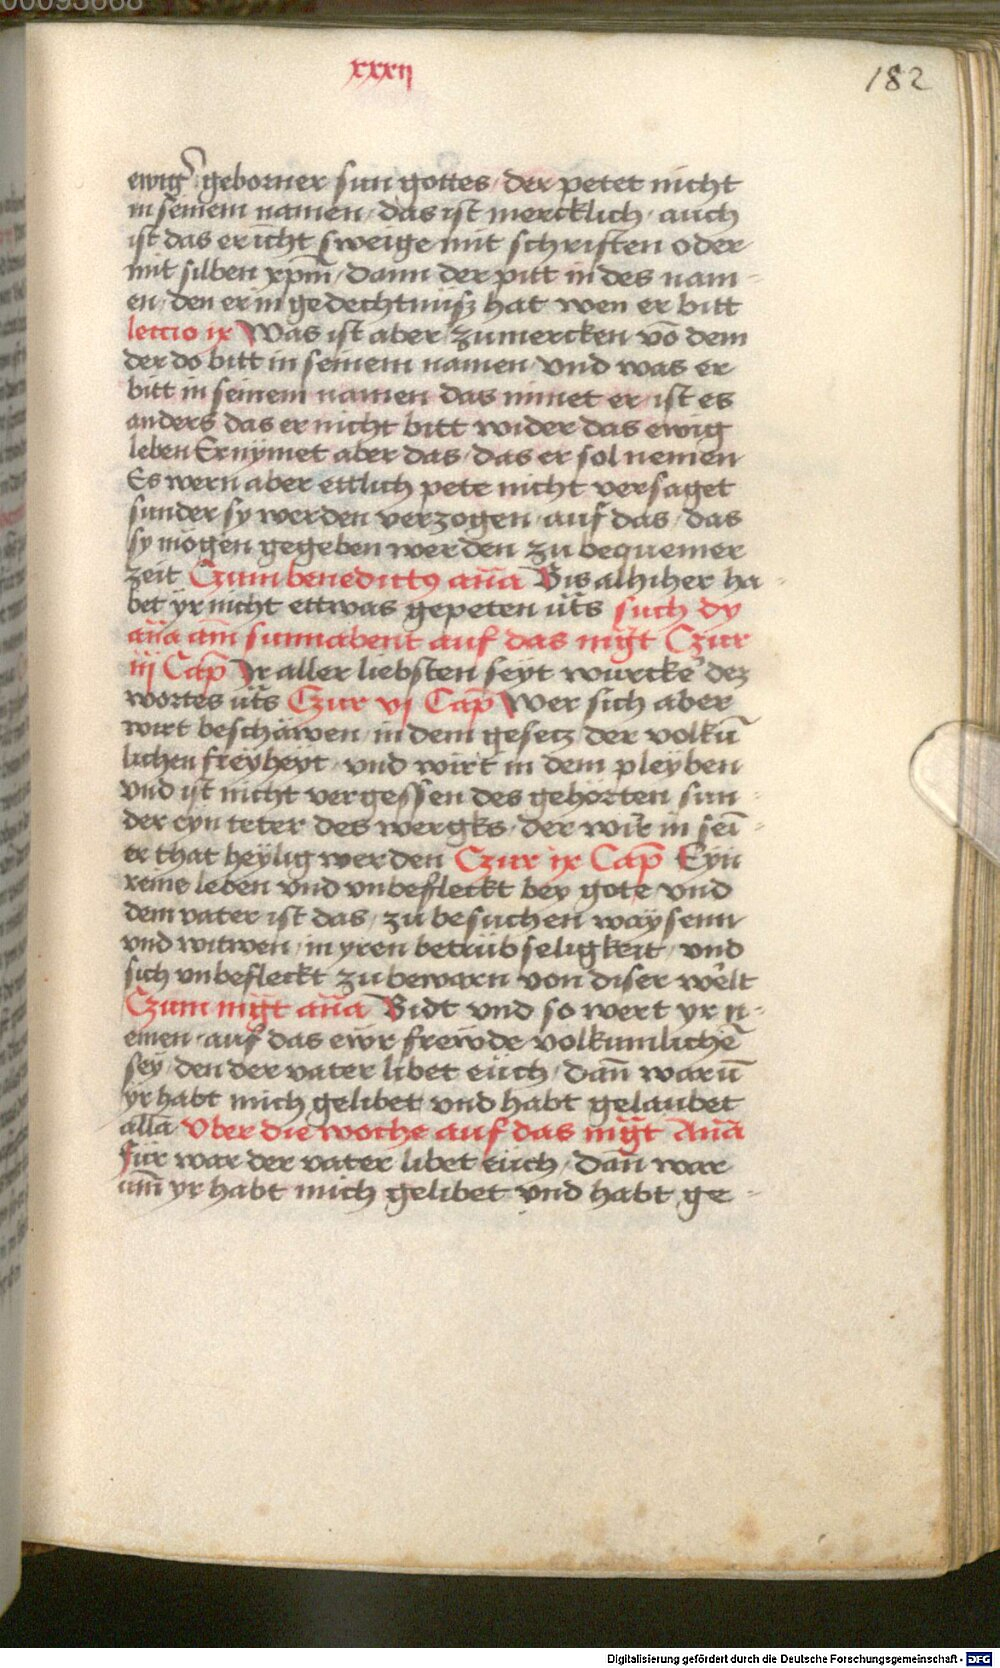 00093668
xxxij
182
ewig᷑ geborner sun gottes / der petet nicht
in seinem namen / das ist mercklich / auch
ist das er icht sweige mit schrifften oder
mit silben xp̄m / dann der pitt in des nam-
en / den er in gedechtnüß hat wen er bitt
leccio ix Was ist aber zumercken vō dem
der do bitt in seinem namen vnd was er
bitt in seinem namen das nimet er / ist es
anders das er nicht bitt wider das ewig
leben Er nÿmet aber das / das er sol nemen
Es wern aber ettlich pete nicht versaget
sunder sy werden verzogen / auf das / das
sy mögen gegeben werden zu bequemer
zeit Czum benedictꝰ an̄a Bis alhiher ha-
bet ÿr nicht ettwas gepeten üt̄s such dy
an̄a am̄ sunnabent auf das mg̃t Czur
iij Cap̄ Ir aller liebsten seyt würckē dez
wortes üt̄s Czur vj Cap̄ Wer sich aber
wirt beschäwen / in dem gesecz der volkū
lichen freÿheÿt / vnd wirt in dem pleÿben
vnd ist nicht vergessen des gehörten sun-
der eyn teter des wergks / der wirt in sei-
er that heÿlig werden Czur ix Cap̄ Eyn
reine leben vnd vnbefleckt bey gote vnd
dem vater ist das / zu besuchen waÿsenn
vnd witwen / in yren betrübseligkeit / vnd
sich vnbefleckt zu bewarn von diser welt
Czum mg̃t an̄a Bidt vnd so wert yr n-
emen / auf das ewr frewde volkumlichē
sey / den der vater libet eüch / dañ warū
yr habt mich gelibet vnd habt gelaubet
alla Vber die woche auf das mg̃t An̄a
für war der vater libet eüch / dañ war
um̄ yr habt mich gelibet vnd habt ge-
Digitalisierung gefördert durch die Deutsche Forschungsgemeinschaft - DFG